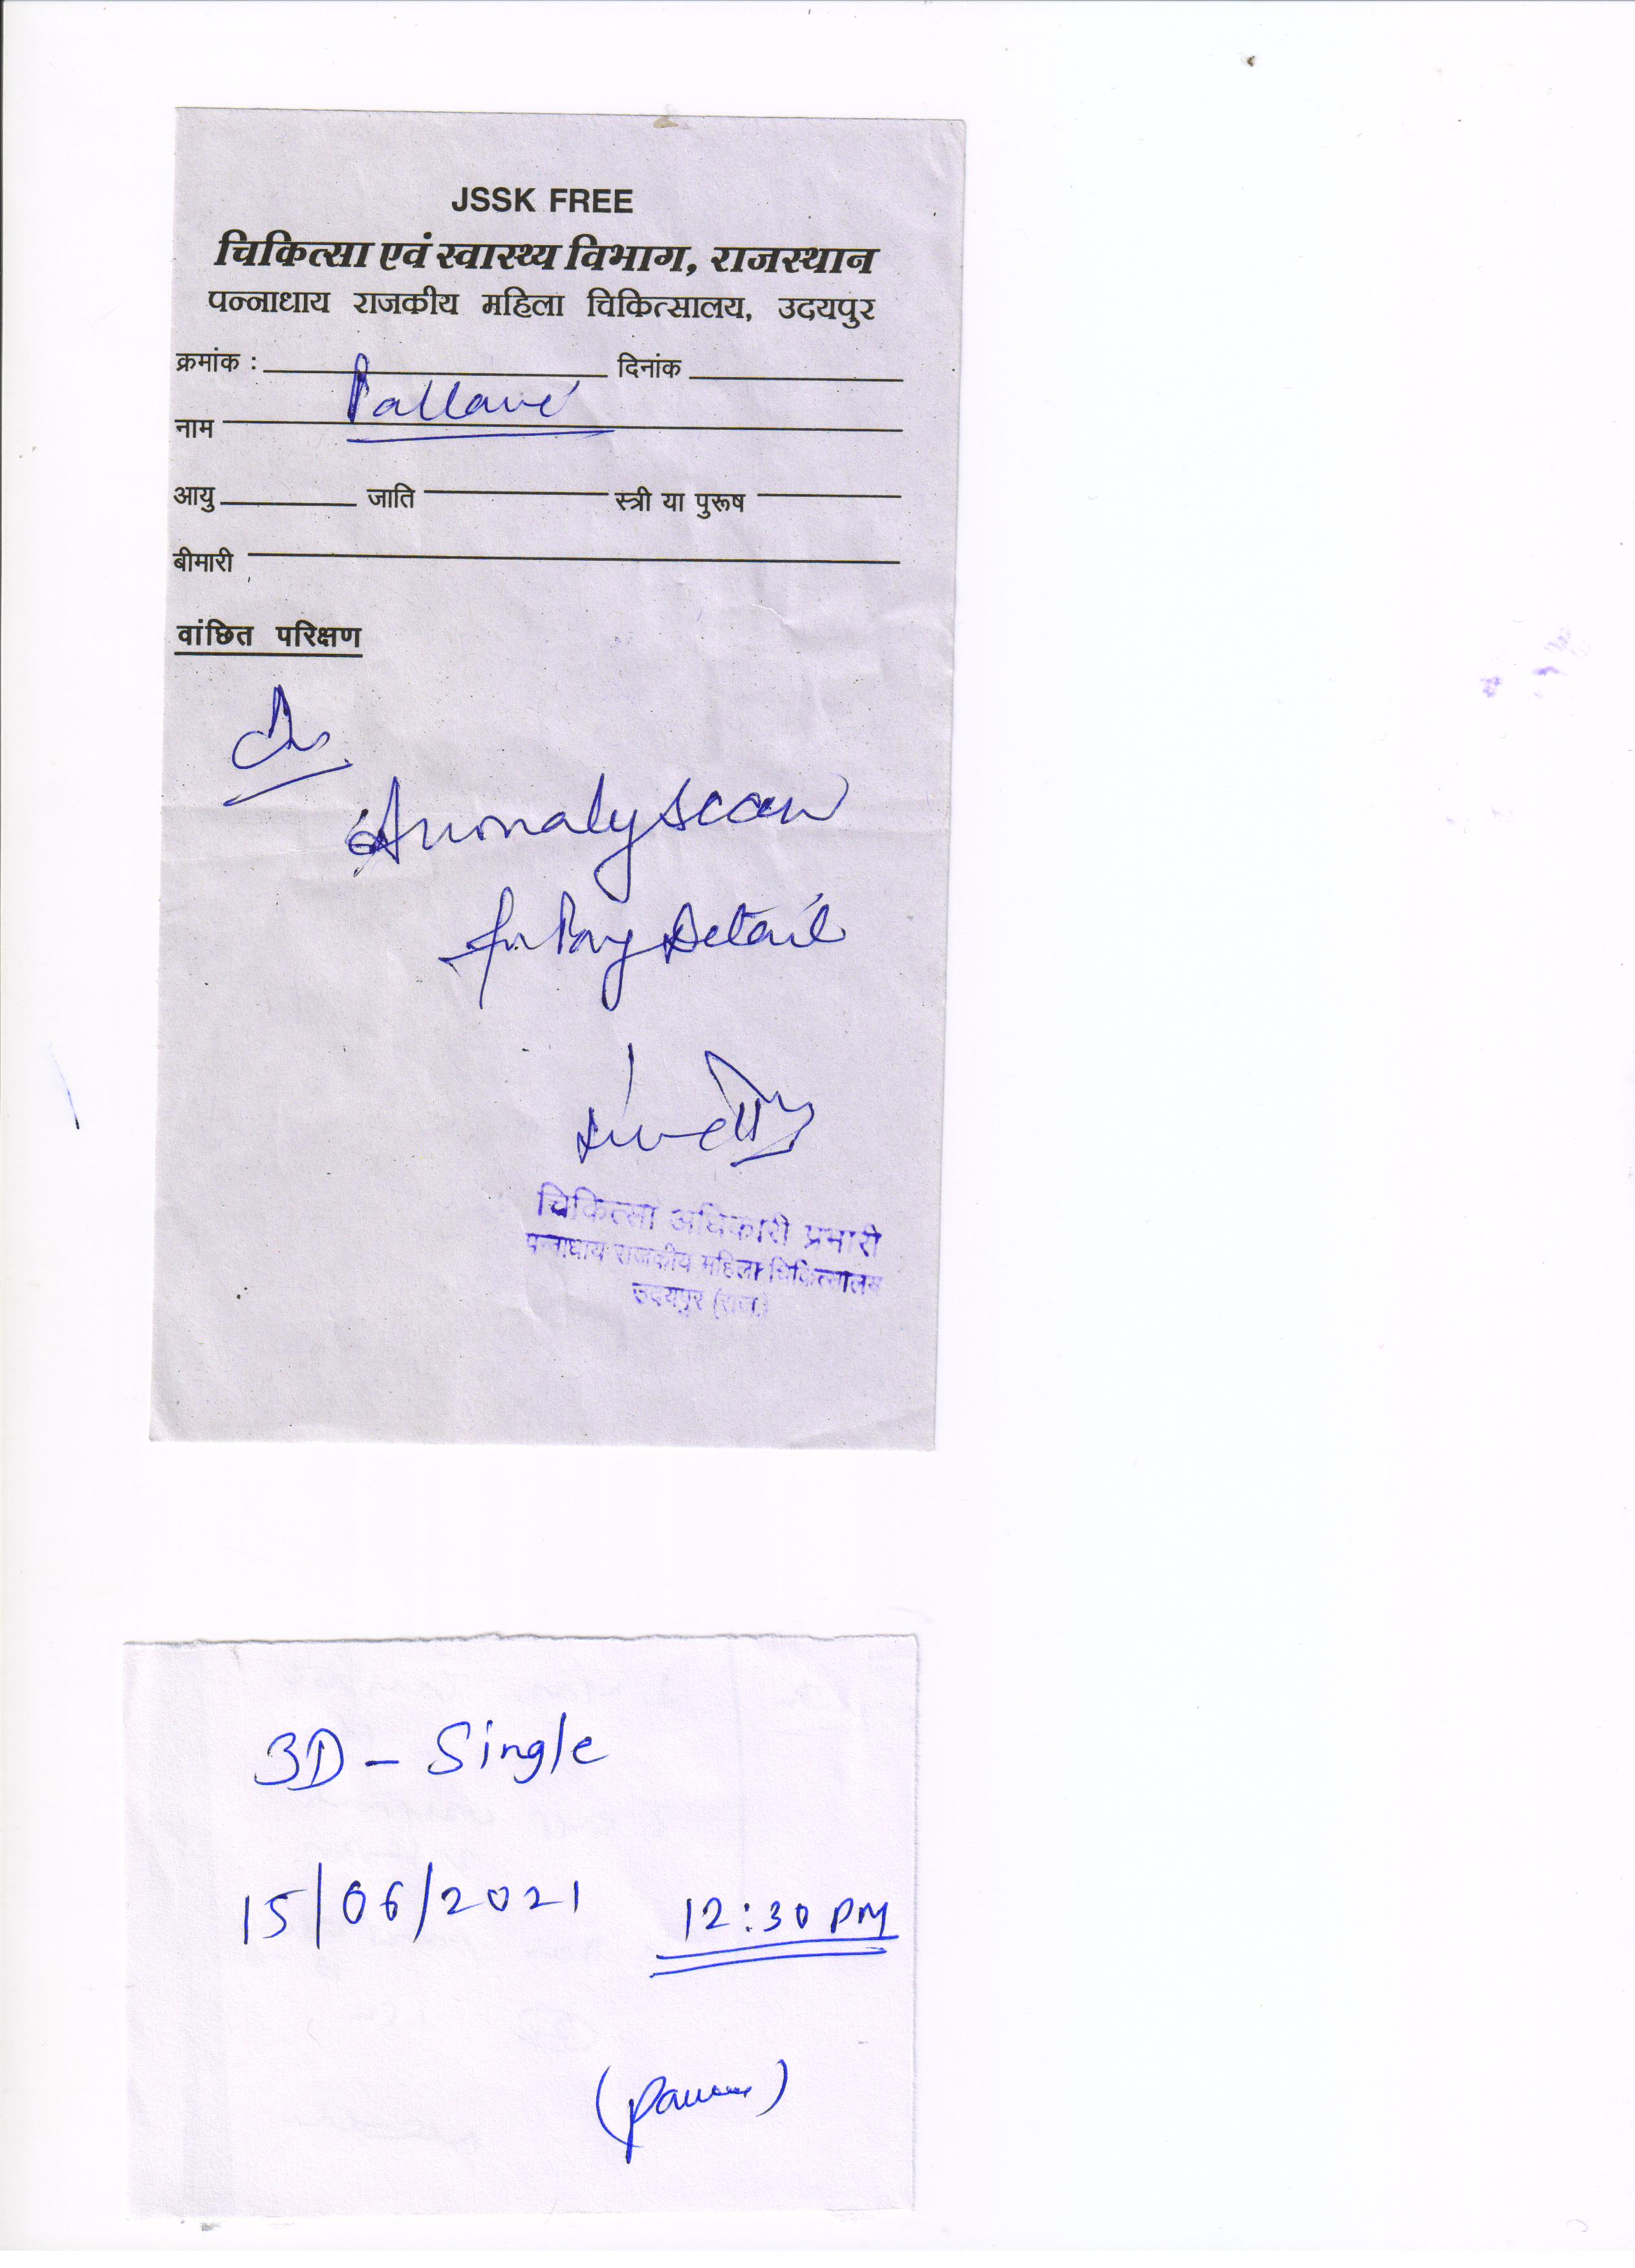 JSSK FREE
चिकित्सा एवं स्वास्थ्य विभाग, राजस्थान
पन्नाधाय राजकीय महिला चिकित्सालय, उदयपुर
क्रमांक : दिनांक
नाम Pallavi
आयु जाति स्त्री या पुरूष
बीमारी
वांछित परिक्षण
Anomaly scan
for Detail
चिकित्सा अधिकारी प्रभारी
पन्नाधाय राजकीय महिला चिकित्सालय
उदयपुर (राज.)
3D - Single
15/06/2021 12:30 PM